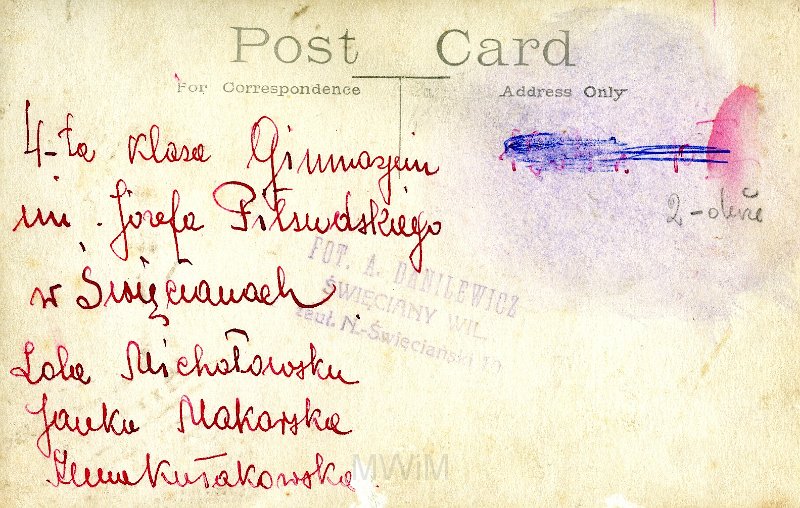 Post Card
For Correspondence
Address Only
4-ta klasa Gimnazjum
im. Józefa Piłsudskiego
w Święcianach
Lola Michałowska
Janka Makarska
Kułakowska
2-duże
FOT. A. DANILEWICZ
ŚWIĘCIANY WIL.
zauł. N.-Święciański 10
MWiM